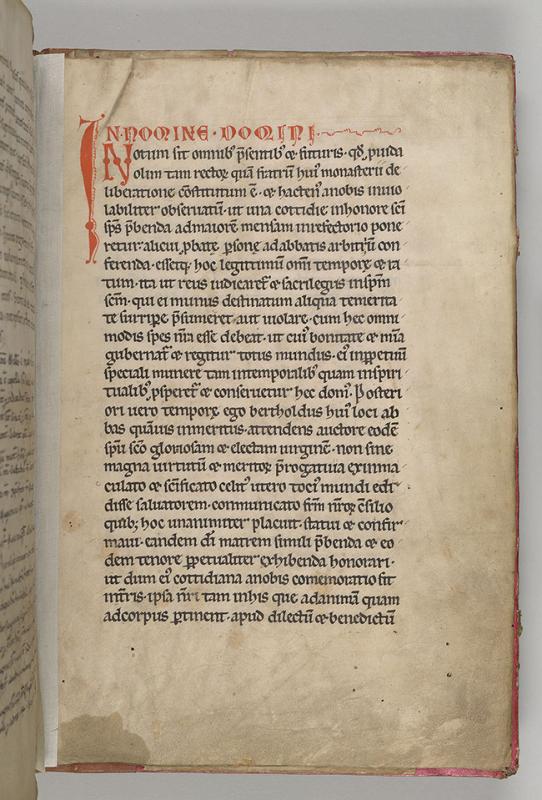 IN·NOMINE·DOMINI·
Notum sit omnib' p̄sentib' & futuris· qđ, puida
olim tam rector quā frat͂rū hui' monasterii de
liberatione cōstitutum ē· & hacten' anobis inuio
labiliter obseruatū· ut una cottidie inhonore sc̄i
sp̄s p̄benda admaiorē mensam inrefectorio pone
retur· alicui ꝓbatę ꝑsonę adabbatis arbitriū con
ferenda· essetq; hoc legittimū om̄i tempore & ra
tum· ita ut reus iudicaret᷑ & sacrilegus insp̄m
sc̄m· qui ei munus destinatum aliqua temerita
te surripe p̄sumeret· aut uiolare· cum hec omni
modis spes nr̄a esse debeat· ut cui' bonitate & mīa
gubernat᷑ & regitur totus mundus· ei' inꝑpetuū
speciali munere tam intemporalib' quam inspiri
tualib', ꝓsperet᷑ & conseruetur hec dom'· Posteri
ori uero tempore ego bertholdus hui' loci ab
bas quāuis inmeritus· attendens auctore eodē
sp̄u sc̄o gloriosam & electam uirginē· non sine
magna uirtutū & meritoꝝ p̄rogatiua exinma
culato & sc̄ificato celit' utero toci' mundi edi
disse saluatorem· conmunicato frm̄ nr̄oꝝ c̄silio
quib; hoc unanimiter placuit· statui & confir
maui· eandem dī matrem simili p̄benda & eo
dem tenore ꝑpetualiter exhibenda honorari·
ut dum ei' cottidiana anobis comemoratio fit
mr̄is· ipsa nr̄i tam inhis que adanimā quam
adcorpus ꝑtinent· apud dilectū & benedictū